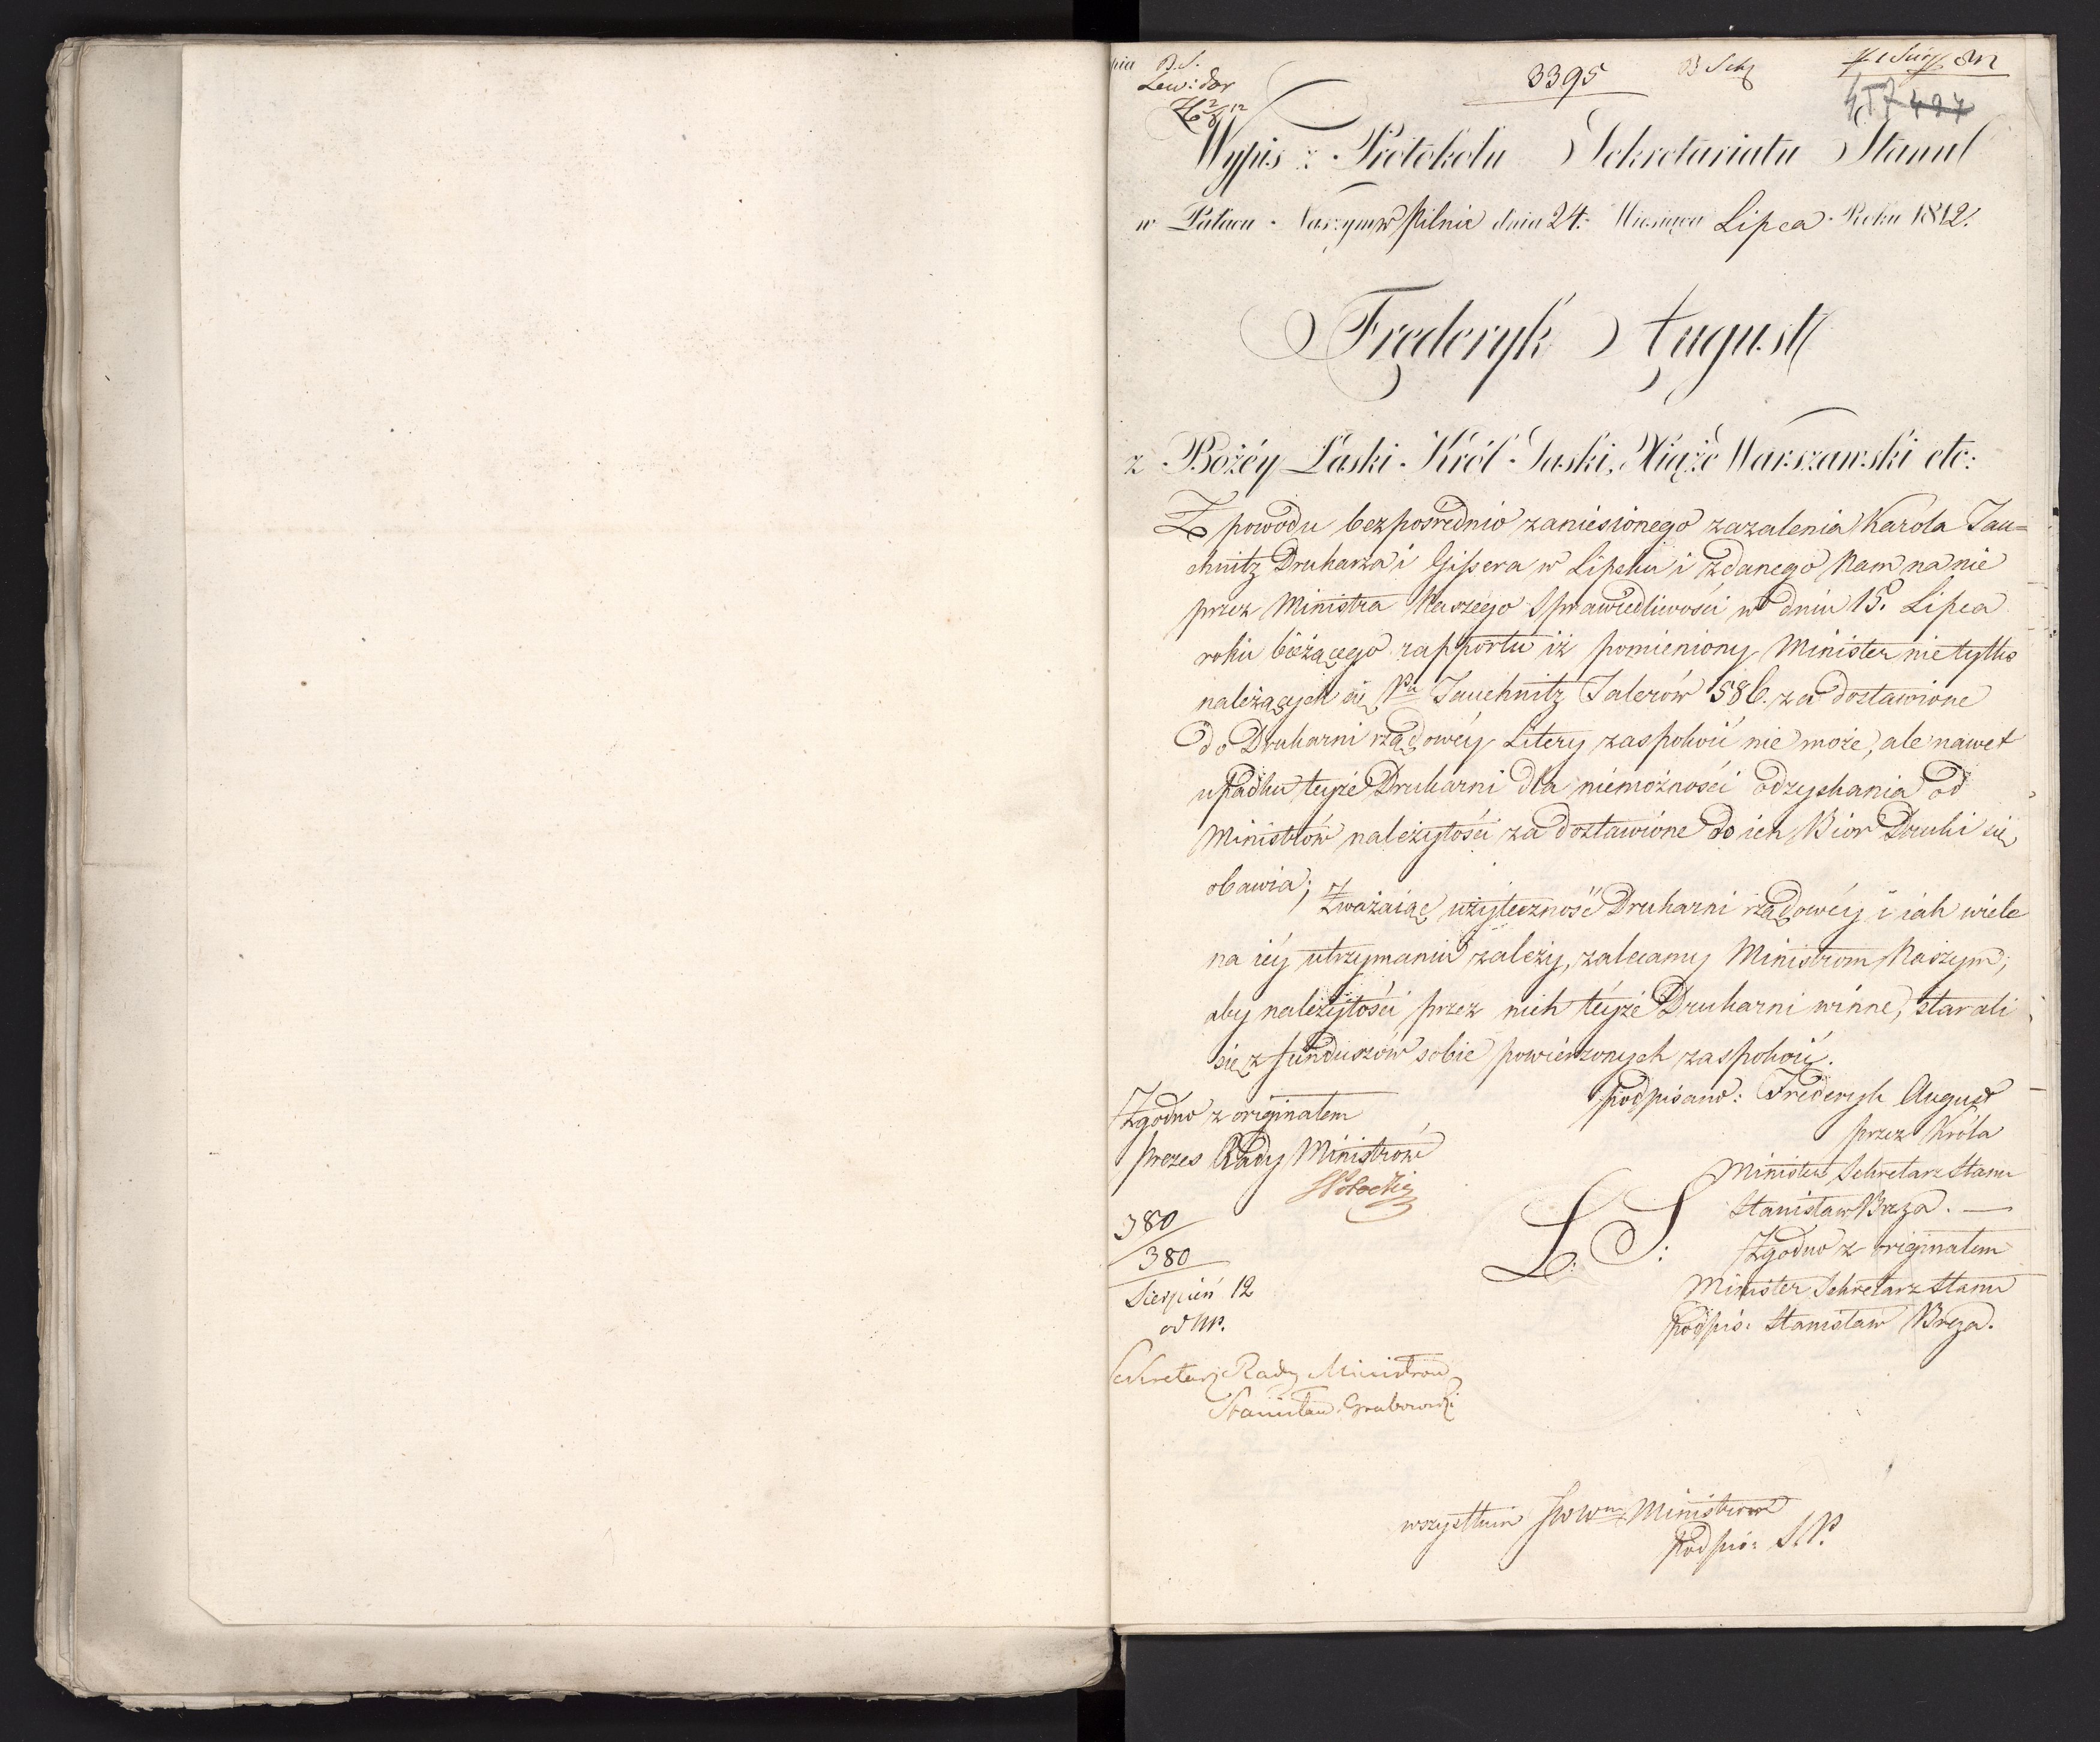 B. S.
3395
457 497
Wypis z Protokołu Sekretariatu Stanu
w Pałacu Naszym w Pilnic dnia 24. Miesiąca Lipca Roku 1812.
Fryderyk August
z Bożéy Łaski Król Saski, Xiąże Warszawski etc:
Z powodu bezpośrednio zaniesionego zażalenia Karola Tau=
chnitz Drukarza i Gissera w Lipsku i zdanego Nam na nie
przez Ministra Naszego Sprawiedliwości w dniu 15. Lipca
roku bieżącego rapportu iż pomieniony Minister nie tylko
należących się Pu Tauchnitz Talerów 586. za dostawione
do Drukarni rządowéy Litery zaspokoić nie może, ale nawet
upadku teyże Drukarni dla niemożności odzyskania od
Ministrów należytości za dostawione do ich Biór Druki się
obawia;
Zważaiąc użyteczność Drukarni rządowéy i iak wiele
na iéy utrzymaniu zależy, zalecamy Ministrom Naszym,
aby należytości przez nich téyże Drukarni winne, starali
się z funduszów sobie powierzonych zaspokoić.
podpisano: Frederyk August
przez Króla
Minister Sekretarz Stanu
Stanisław Breza. —
Zgodno z originałem
Minister Sekretarz Stanu
podpis: Stanisław Breza.
L. S:
Zgodno z originałem
prezes Rady Ministrów
SPotocki
380
380
Sierpień 12
od NP.
Sekretarz Rady Ministrow
Stanisław Grabowski
wszystkim JWWm Ministrom
podpis: S. P.